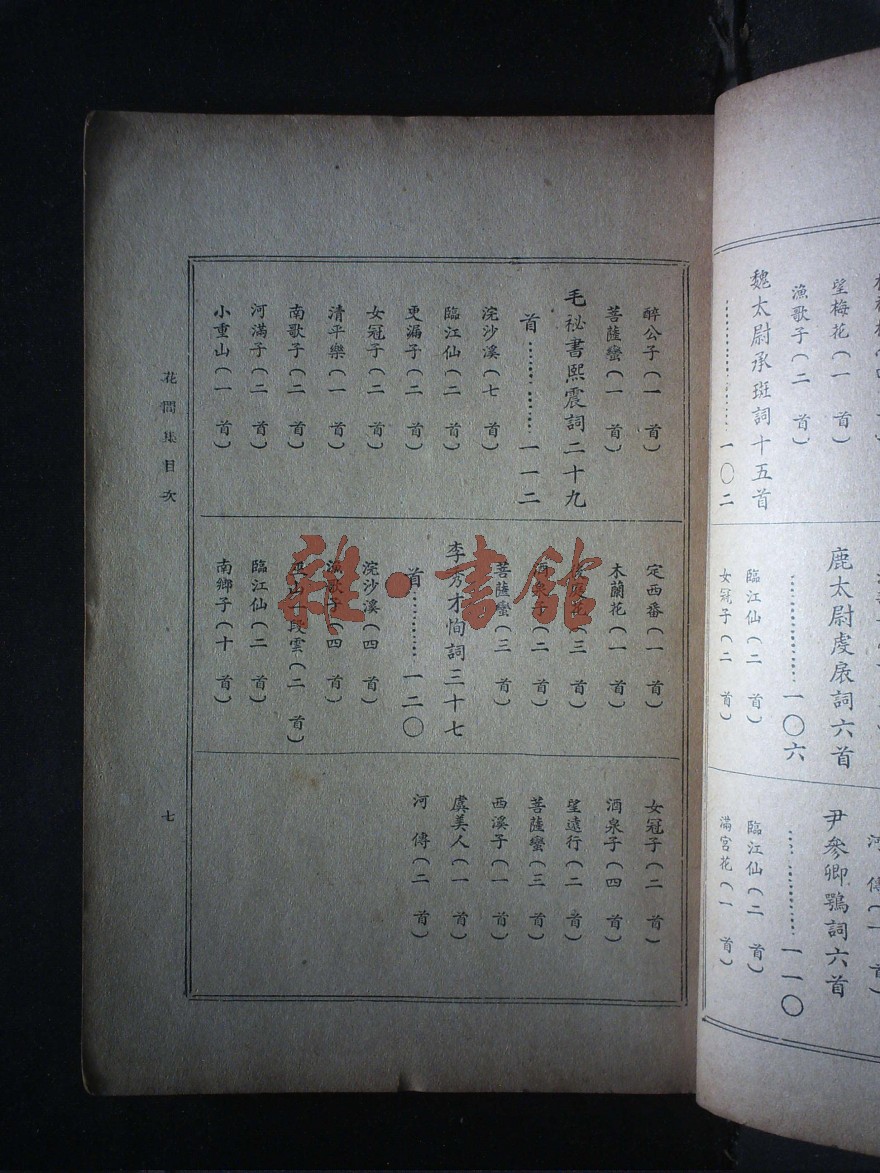 望梅花（一首）
漁歌子（二首）
魏太尉承班詞十五首
……………一〇二
鹿太尉虔扆詞六首
……………一〇六
臨江仙（二首）
女冠子（二首）
尹參卿鶚詞六首
……………一一〇
臨江仙（二首）
滿宮花（一首）
醉公子（一首）
菩薩蠻（一首）
毛祕書熙震詞二十九
首……………一一二
浣沙溪（七首）
臨江仙（二首）
更漏子（二首）
女冠子（二首）
清平樂（一首）
南歌子（二首）
河滿子（二首）
小重山（一首）
定西番（一首）
木蘭花（一首）
花（三首）
酒泉子（二首）
菩薩蠻（三首）
李秀才恂詞三十七
首……………一二〇
浣沙溪（四首）
漁歌子（四首）
巫山一段雲（二首）
臨江仙（二首）
南鄉子（十首）
女冠子（二首）
酒泉子（四首）
望遠行（二首）
菩薩蠻（三首）
西溪子（一首）
虞美人（一首）
河傳（二首）
花間集目次
七
雜·書館